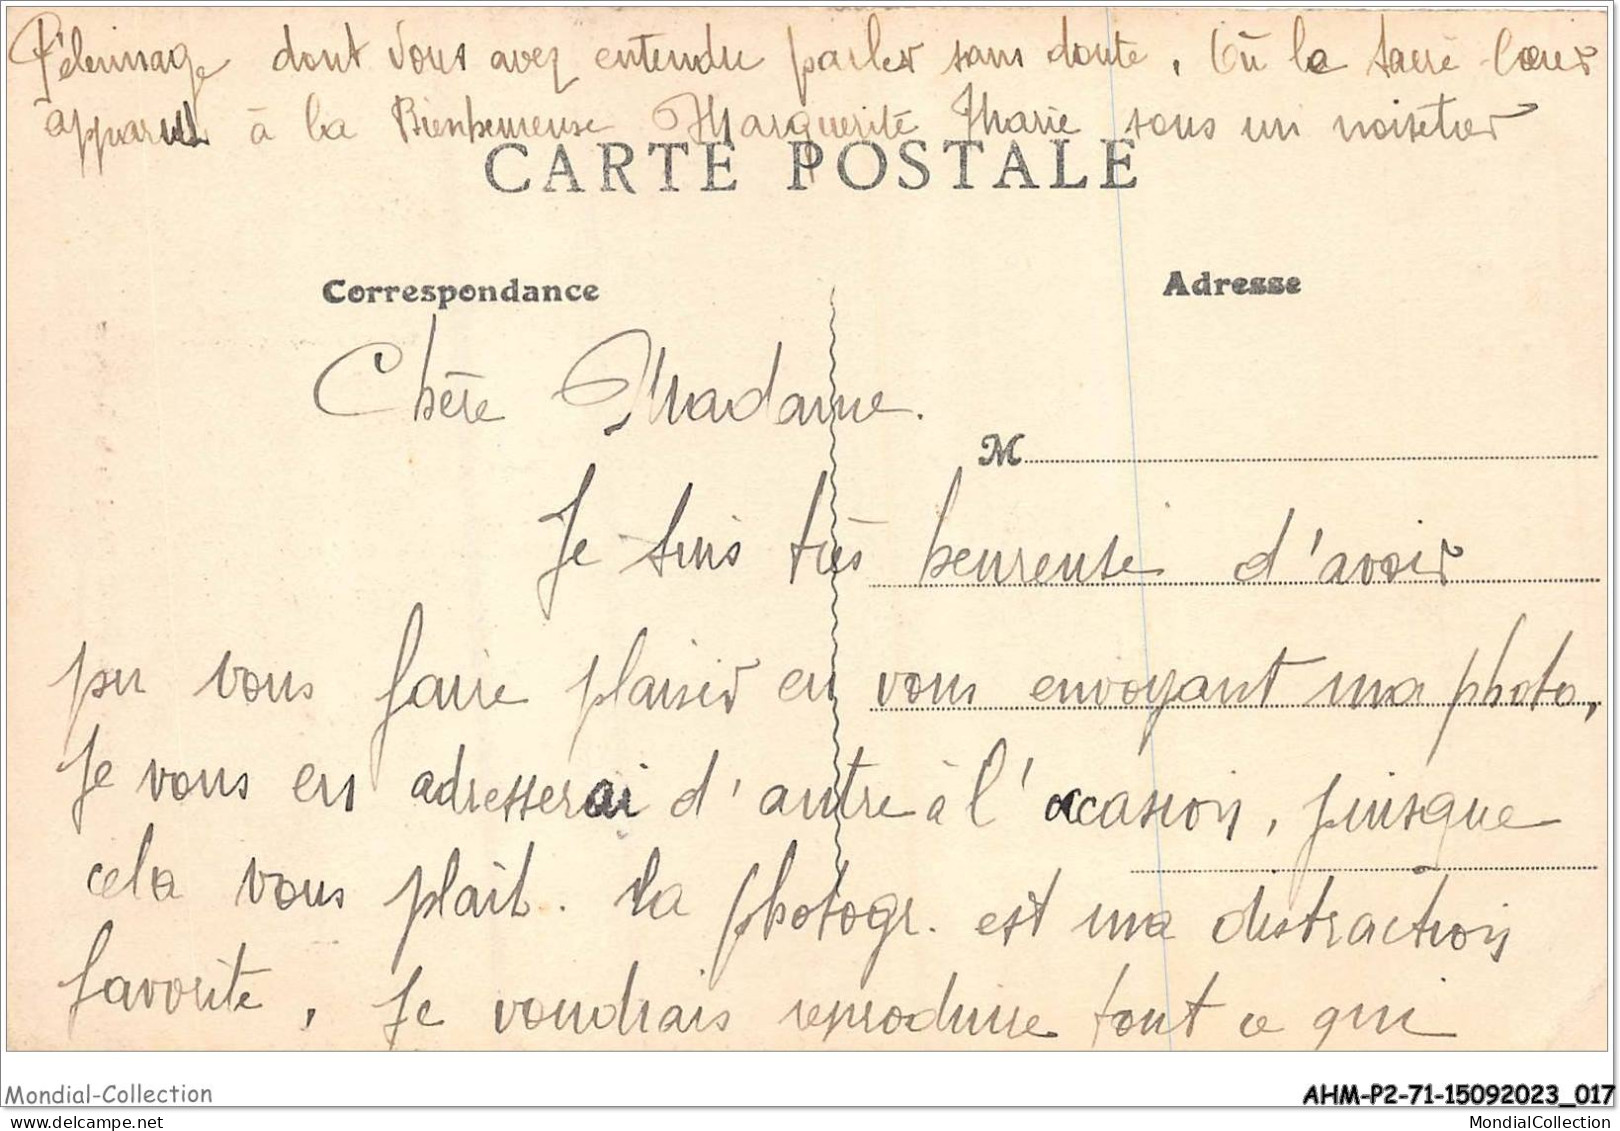 Pélerinage dont vous avez entendu parler sans doute, Où le Sacré-Cœur
apparut à la Bienheureuse Marguerite Marie sous un noisetier
CARTE POSTALE
Correspondance
Adresse
Chère Madame.
M
Je suis très heureuse d'avoir
pu vous faire plaisir en vous envoyant ma photo,
Je vous en adresserai d'autre à l'occasion, puisque
cela vous plait. la photogr. est ma distraction
favorite, Je voudrais reproduire tout ce qui
Mondial-Collection
AHM-P2-71-15092023_017
MondialCollection
delcampe.net
MondialCollection